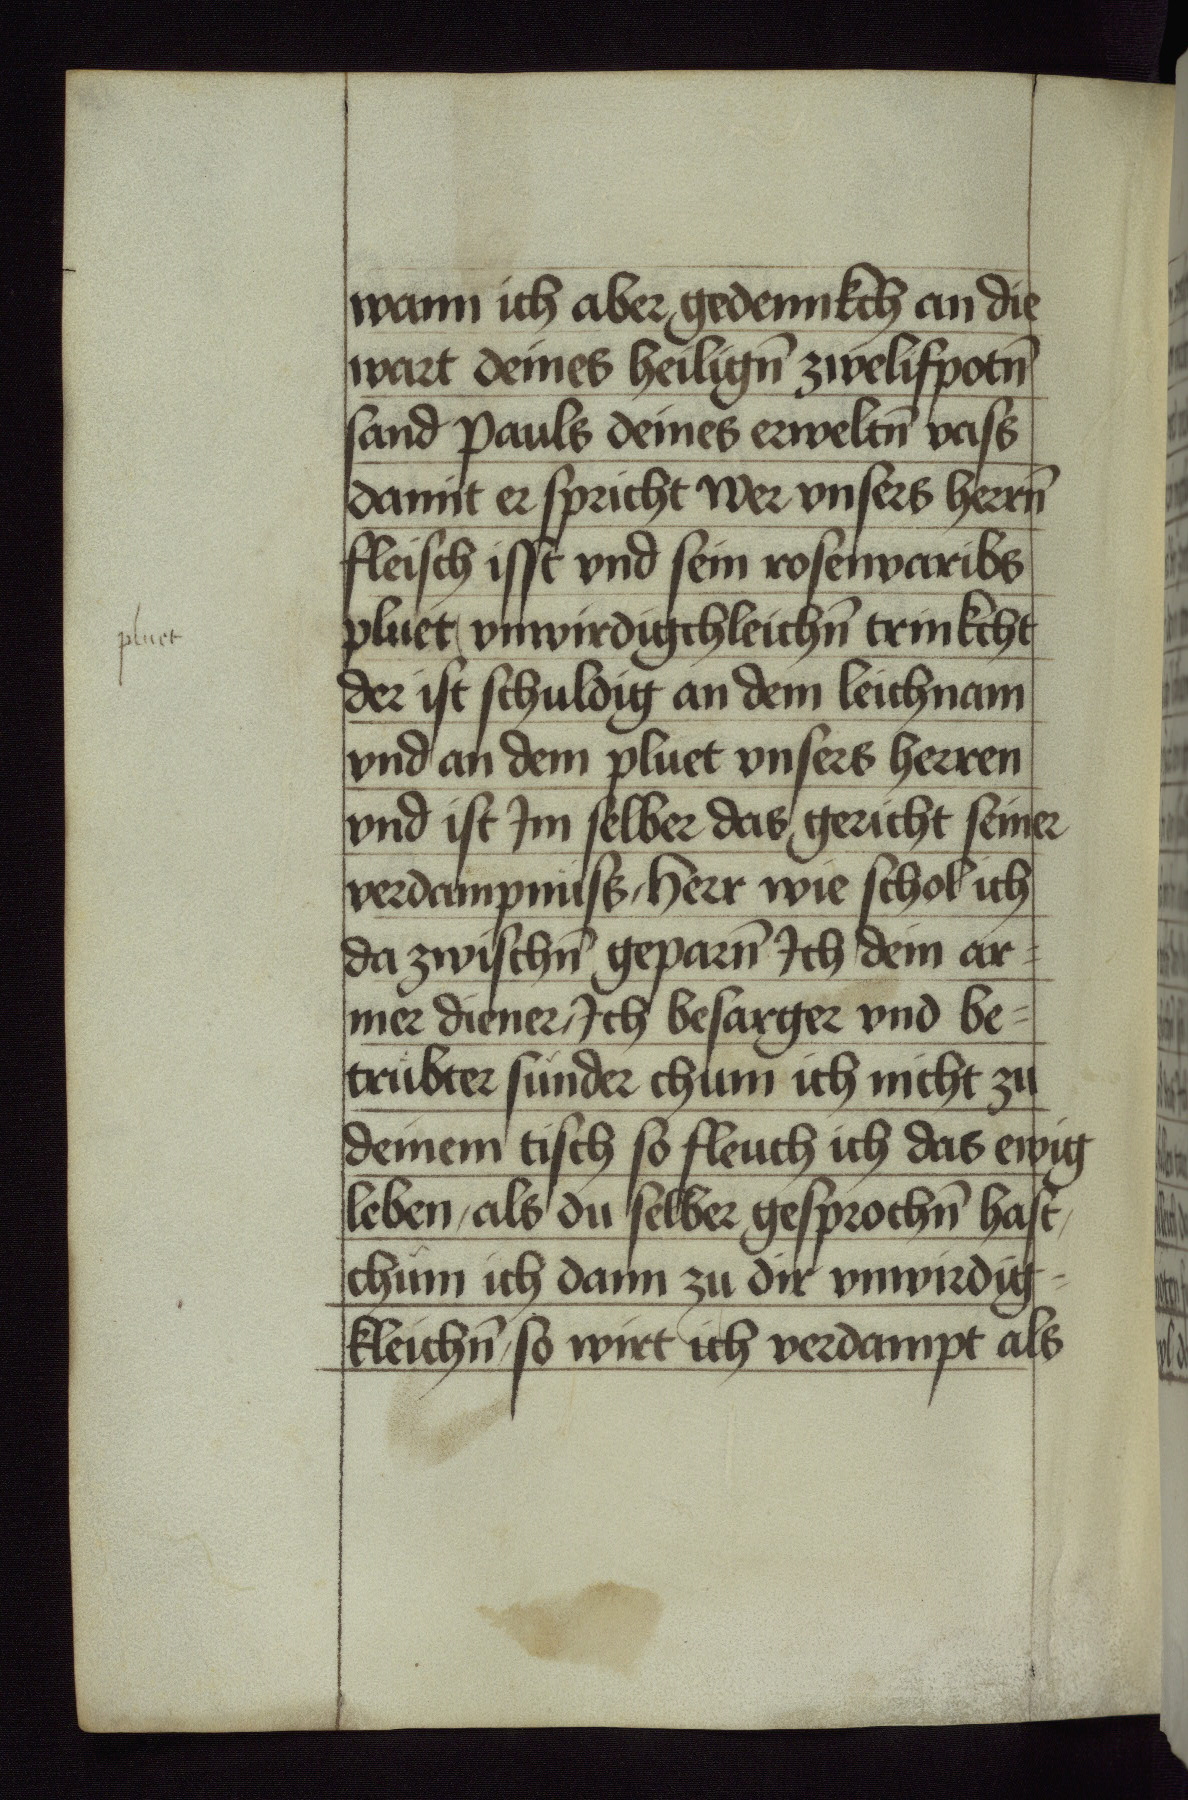 wann ich aber gedennkch an die
wart deines heilign̄ zwelifpotn̄
sand Pauls deines erweltn̄ vass
damit er spricht Wer vnsers herrn̄
fleisch isst vnd sein rosenvaribs
pluet
pluet vnwirdigchleichn̄ trinkcht
der ist schuldig an dem leichnam
vnd an dem pluet vnsers herren
vnd ist Jm selber das gericht seiner
verdampnuss / Herr wie schol ich
da zwischn̄ geparn̄ Ich dein ar=
mer diener / Ich besarger vnd be=
trübter sünder chum ich nicht zu
deinem tisch so fleuch ich das ewig
leben / als du selber gesprochn̄ hast /
chüm ich dann zu dir vnwirdig=
kleichn̄ / so wirt ich verdampt als